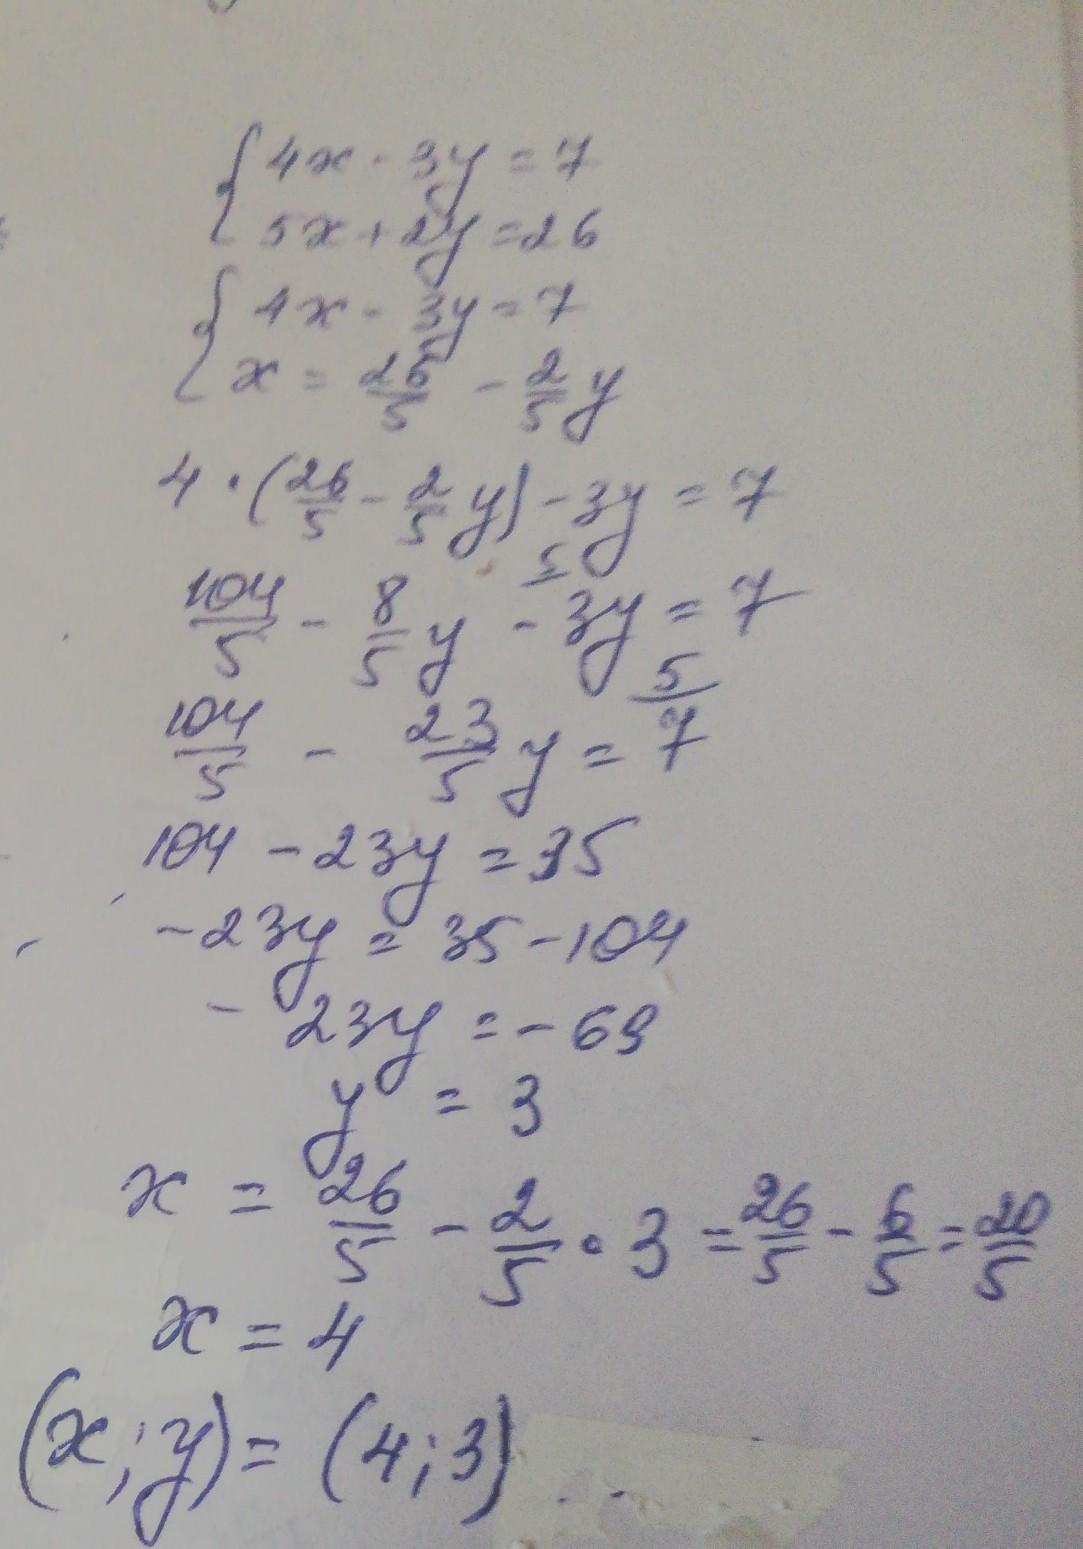 { 4x - 3y = 7
5x + 2y = 26
{ 4x - 3y = 7
x = 26/5 - 2/5 y
4 · (26/5 - 2/5 y) - 3y = 7
104/5 - 8/5 y - 3y = 7
104/5 - 23/5 y = 7
104 - 23y = 35
- 23y = 35 - 104
- 23y = - 69
y = 3
x = 26/5 - 2/5 · 3 = 26/5 - 6/5 = 20/5
x = 4
(x; y) = (4; 3)